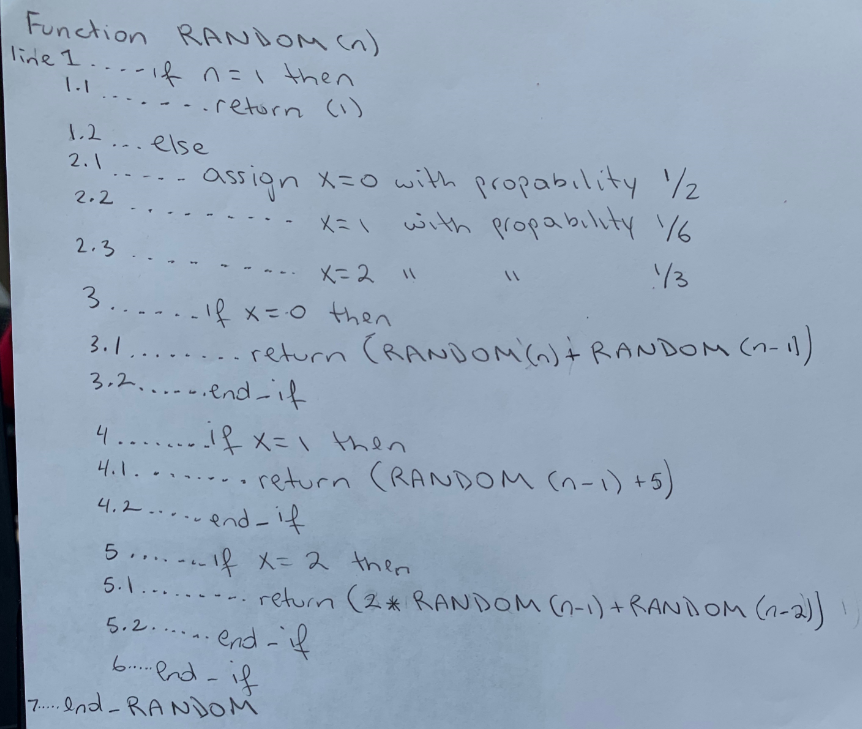 Function RANDOM(n)
line 1.....if n=1 then
1.1.......return (1)
1.2...else
2.1.....assign x=0 with propability 1/2
2.2.......... x=1 with propability 1/6
2.3.......... x=2 " " 1/3
3.......if x=0 then
3.1........return (RANDOM(n)+RANDOM(n-1))
3.2.......end-if
4........if x=1 then
4.1........return (RANDOM(n-1)+5)
4.2......end-if
5.......if x=2 then
5.1.........return (2*RANDOM(n-1)+RANDOM(n-2))
5.2.......end-if
6.....end-if
7.....end-RANDOM